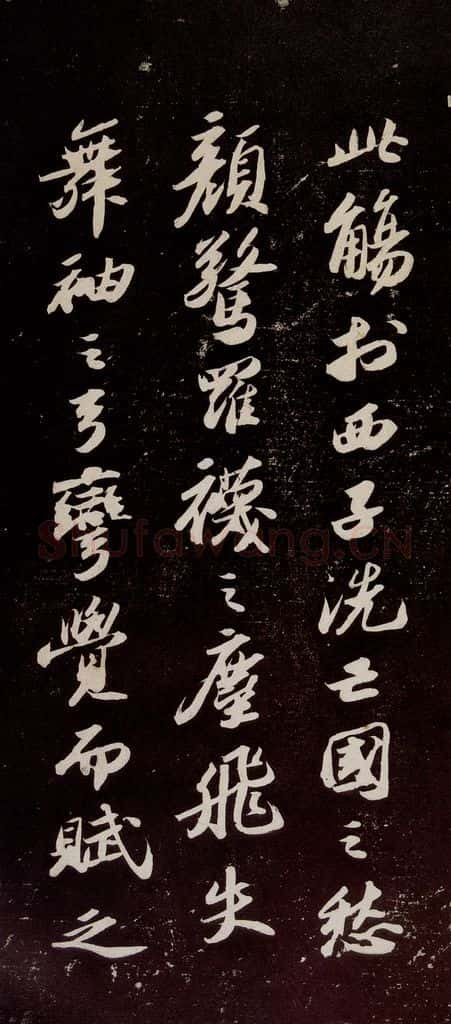 此觴於西子洗亡國之愁
顏驚羅襪之塵飛失
舞袖之弓彎覺而賦之
Shufawang.CN